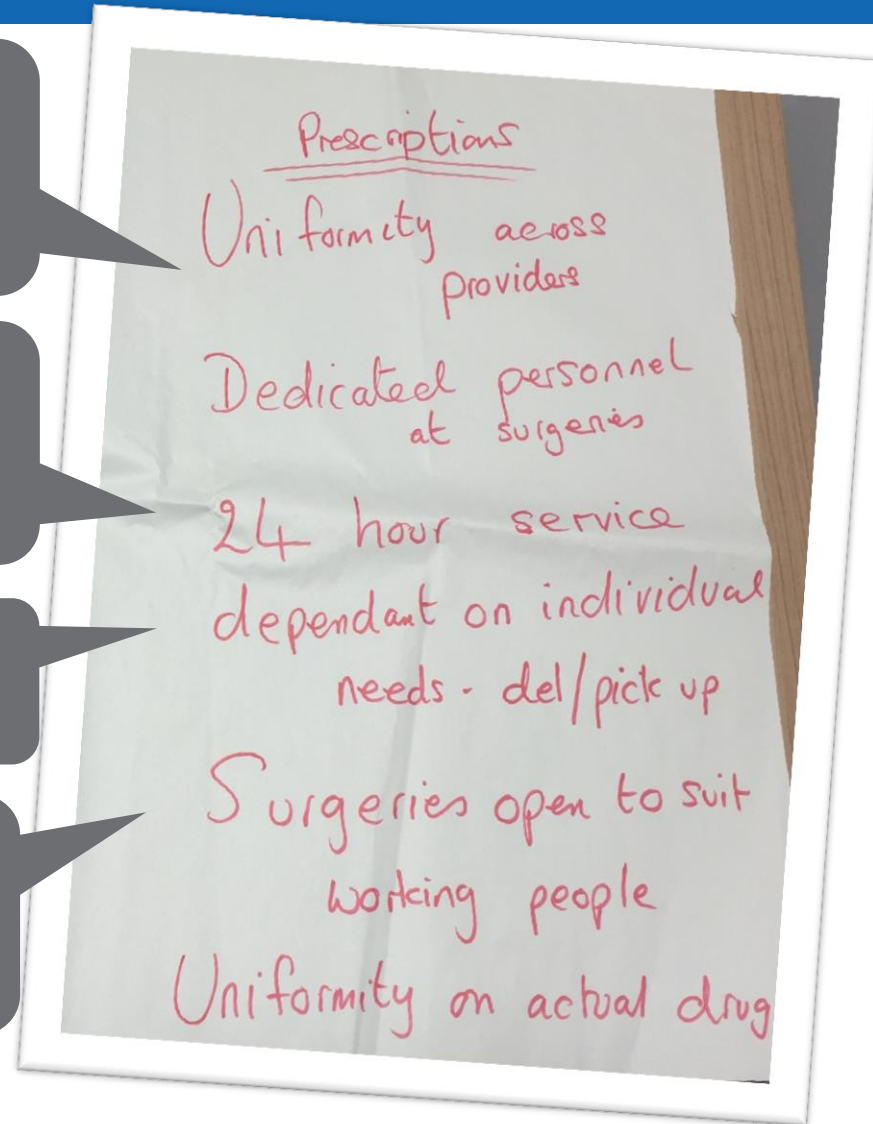 Prescriptions
Uniformity across
providers
Dedicated personnel
at surgeries
24 hour service
dependant on individual
needs - del/pick up
Surgeries open to suit
working people
Uniformity on actual drug